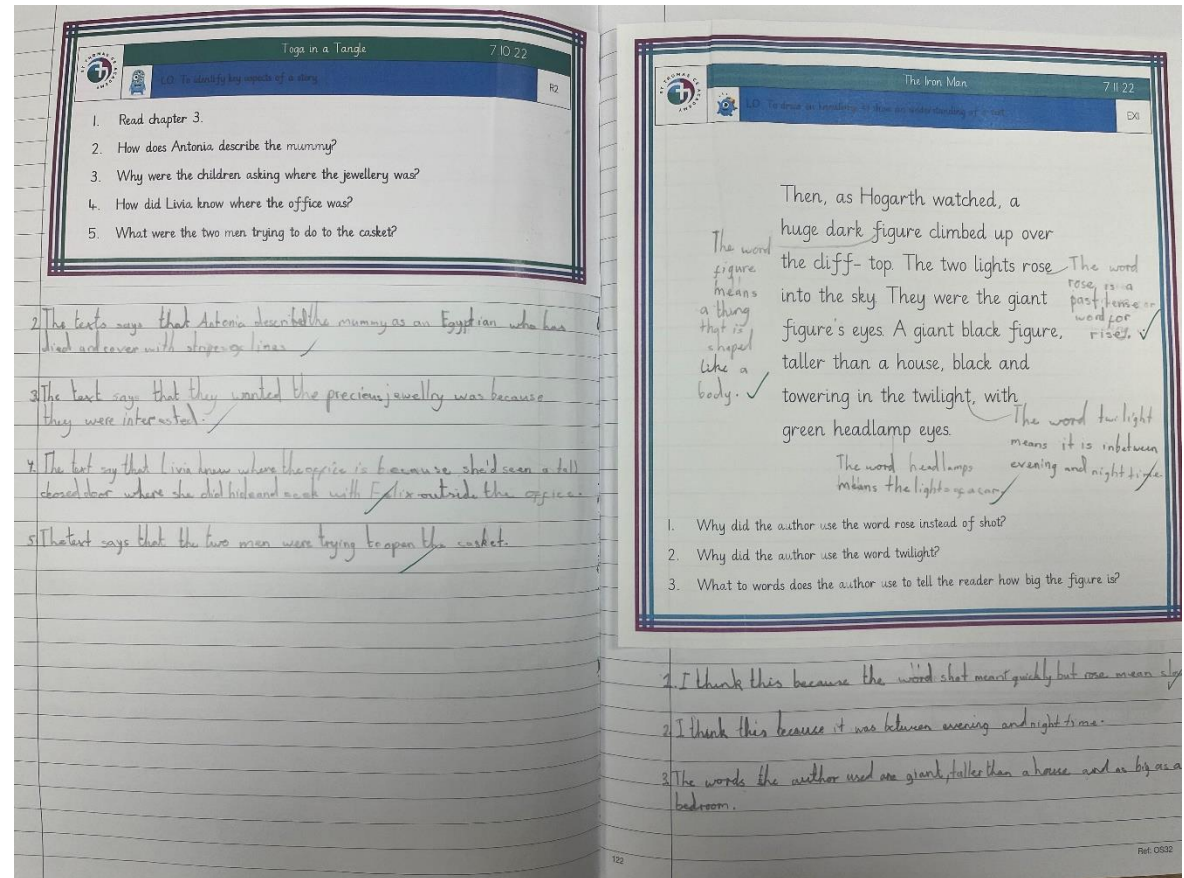 Toga in a Tangle 7 10 22
ST THOMAS CE ACADEMY
LO: To identify key aspects of a story.
R2
1. Read chapter 3.
2. How does Antonia describe the mummy?
3. Why were the children asking where the jewellery was?
4. How did Livia know where the office was?
5. What were the two men trying to do to the casket?
2. The texts says that Antonia described the mummy as an Egyptian who has
died and cover with stripes of lines
3. The text says that they wanted the precious jewellry was because
they were interested.
4. The text say that Livia knew where the office is because she'd seen a tall
closed door where she did hide and seek with Felix outside the office.
5. The text says that the two men were trying to open the casket.
The Iron Man 7 11 22
ST THOMAS CE ACADEMY
LO: To draw on to an understanding of a text
EXI
Then, as Hogarth watched, a
huge dark figure climbed up over
the cliff- top. The two lights rose
into the sky. They were the giant
figure's eyes. A giant black figure,
taller than a house, black and
towering in the twilight, with
green headlamp eyes.
The word
figure
means
a thing
that is
shaped
like a
body.
The word
rose, is a
past tense
word for
rises.
The word twilight
means it is inbetween
evening and night time
The word headlamps
means the lights of a car
1. Why did the author use the word rose instead of shot?
2. Why did the author use the word twilight?
3. What to words does the author use to tell the reader how big the figure is?
1. I think this because the word shot meant quickly but rose mean
2. I think this because it was between evening and night time.
3. The words the author used are giant, taller than a house and as big as a
bedroom.
122
Ref: OS32